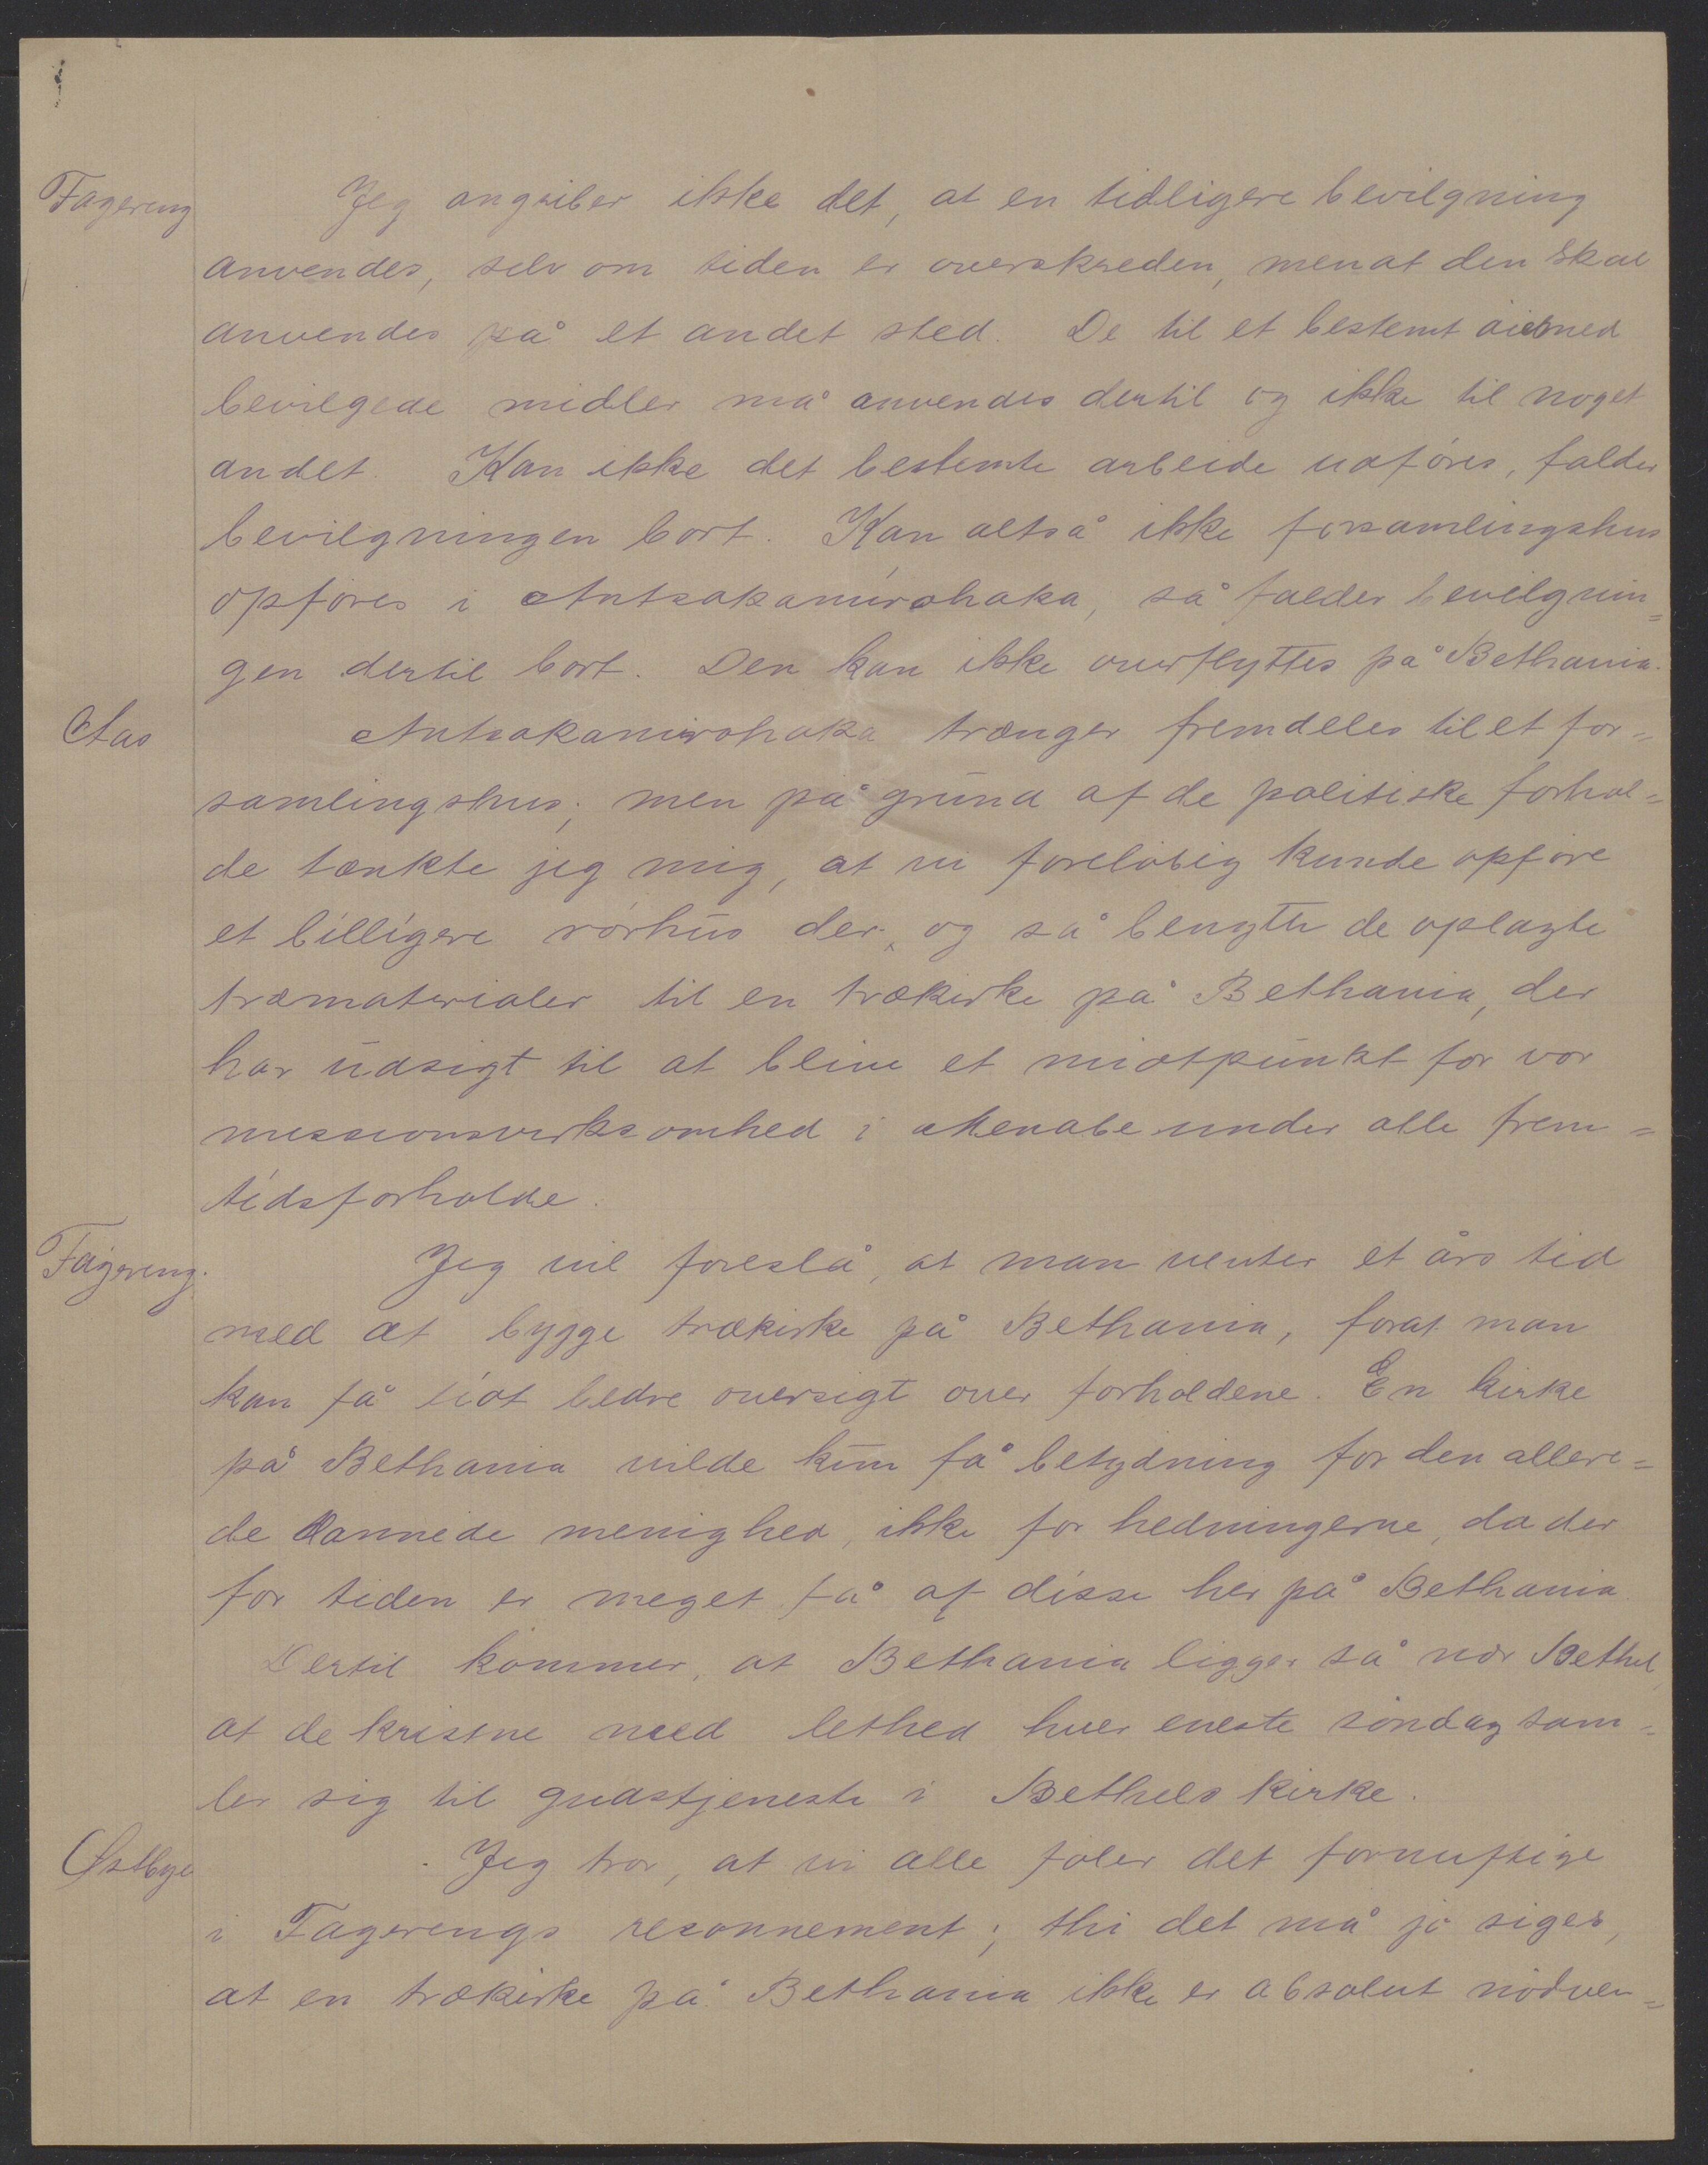 Fagereng Jeg angriber ikke det, at en tidligere bevilgning
anvendes, selv om tiden er overskreden, men at den skal
anvendes på et andet sted. De til et bestemt øiemed
bevilgede midler må anvendes dertil og ikke til noget
andet. Kan ikke det bestemte arbeide udføres, falder
bevilgningen bort. Kan altså ikke forsamlingshus
opføres i Antsakamirohaka, så falder bevilgnin=
gen dertil bort. Den kan ikke overflyttes på Bethania.
Aas Antsakamirohaka trænger fremdeles til et for=
samlingshus; men på grund af de politiske forhol=
de tænkte jeg mig, at vi foreløbig kunde opføre
et billigere rørhus der, og så benytte de oplagte
træmaterialer til en trækirke på Bethania, der
har udsigt til at blive et midtpunkt for vor
missionsvirksomhed i Menabe under alle frem=
tidsforholde.
Fagereng. Jeg vil foreslå, at man venter et års tid
med at bygge trækirke på Bethania, forat man
kan få lidt bedre oversigt over forholdene. En kirke
på Bethania vilde kun få betydning for den allere=
de dannede menighed, ikke for hedningerne, da der
for tiden er meget få af disse her på Bethania.
Dertil kommer, at Bethania ligger så nær Bethel,
at de kristne med lethed hver eneste søndag sam=
ler sig til gudstjeneste i Bethels kirke.
Østbye Jeg tror, at vi alle føler det fornuftige
i Fagerengs resonnement; thi det må jo siges,
at en trækirke på Bethania ikke er absolut nødven=